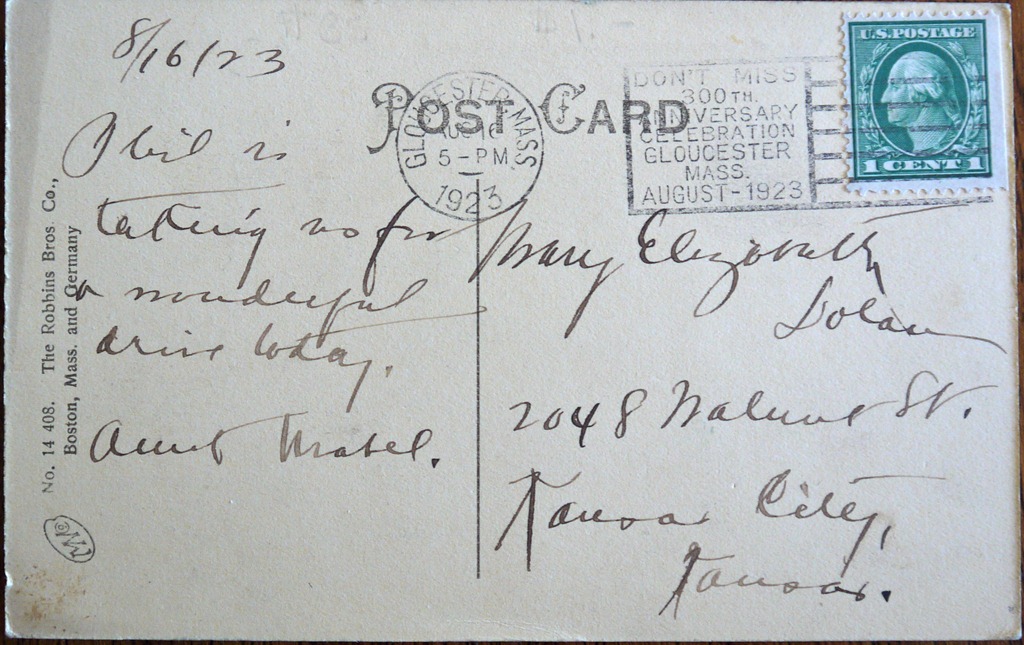 8/16/23
POST CARD
GLOUCESTER, MASS.
AUG 16
5-PM
1923
DON'T MISS
300TH.
ANNIVERSARY
CELEBRATION
GLOUCESTER
MASS.
AUGUST-1923
U.S. POSTAGE
1 CENT 1
Phil is
taking us for
a wonderful
drive today.
Aunt Mabel.
Mary Elizabeth
Dolan
2048 Walnut St.
Kansas City,
Kansas.
No. 14 408. The Robbins Bros. Co.,
Boston, Mass. and Germany